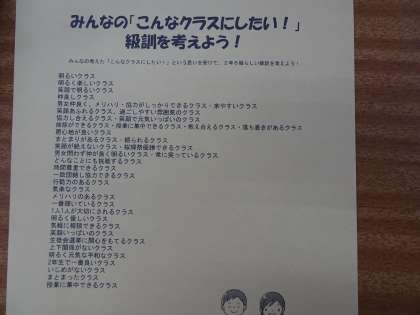 みんなの「こんなクラスにしたい！」
級訓を考えよう！
みんなの考えた「こんなクラスにしたい！」という思いを受けて、２年６組らしい級訓を考えよう！
明るいクラス
明るく楽しいクラス
笑顔で明るいクラス
仲良しクラス
男女仲良く、メリハリ・協力がしっかりできるクラス・来やすいクラス
笑顔あふれるクラス、過ごしやすい雰囲気のクラス
協力し合えるクラス・笑顔で元気いっぱいのクラス
挨拶ができるクラス・授業に集中できるクラス・教え合えるクラス・落ち着きがあるクラス
居心地が良いクラス
まとまりがあるクラス・頼られるクラス
笑顔が絶えないクラス・桜輝祭優勝できるクラス
男女問わず仲が良く明るいクラス・常に笑っているクラス
どんなことにも挑戦するクラス
時間厳守できるクラス
一致団結し協力できるクラス
行動力のあるクラス
気楽なクラス
メリハリのあるクラス
一番輝いているクラス
1人1人が大切にされるクラス
明るく優しいクラス
気軽に相談できるクラス
笑顔いっぱいのクラス
生徒会選挙に関心をもてるクラス
上下関係がないクラス
明るく元気な平和なクラス
2年生で一番良いクラス
いじめがないクラス
まとまったクラス
授業に集中できるクラス